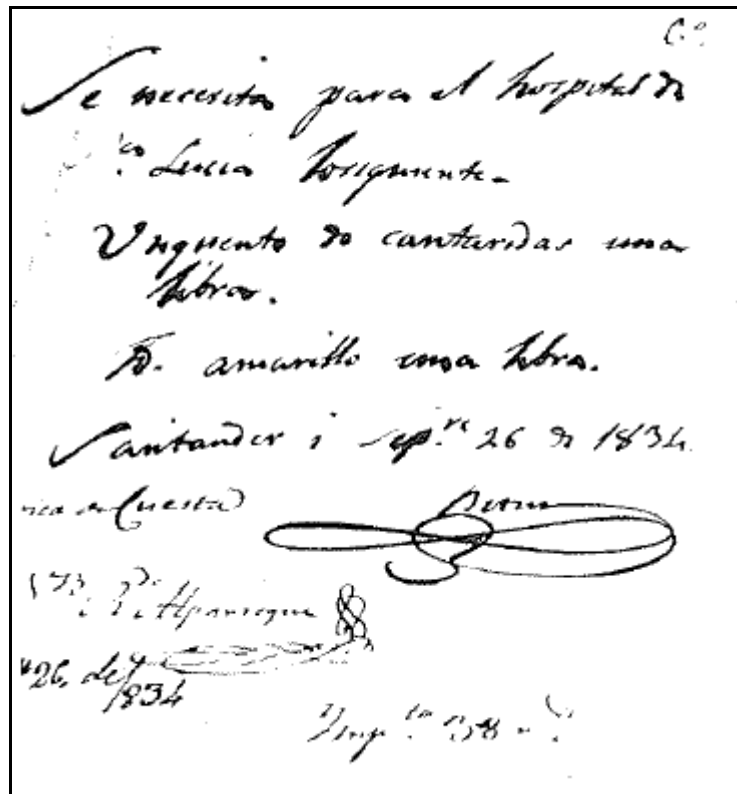 C.º
Se necesita para el hospital de
Sta. Lucia losiguiente.
Unguento de cantaridas una
libra.
Yd. amarillo una libra.
Santander i Sep.re 26 de 1834
Cuesta
26. de
1834
Imp.ta 38 r.s